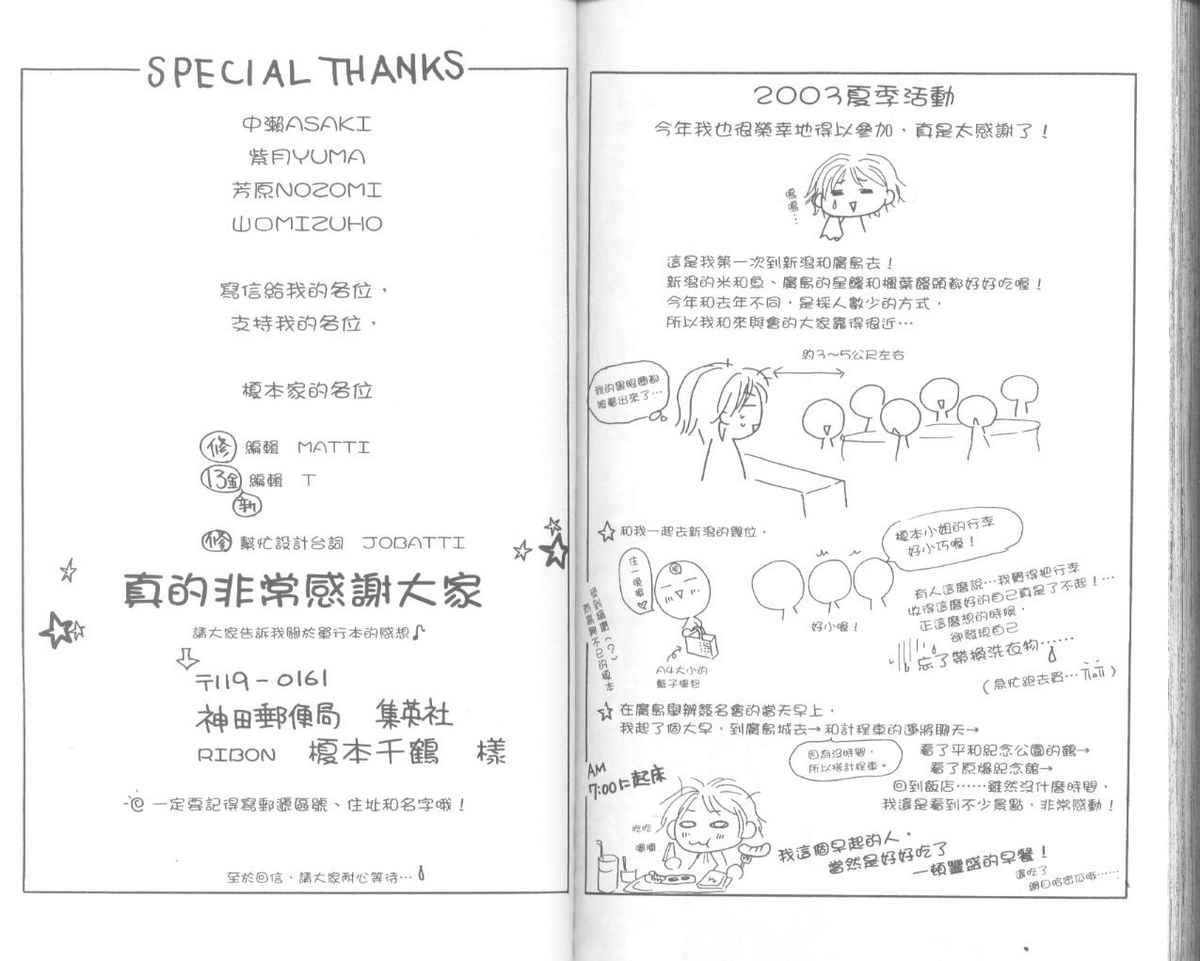 SPECIAL THANKS
中瀨ASAKI
紫月YUMA
芳原NOZOMI
山口MIZUHO
寫信給我的各位，
支持我的各位，
榎本家的各位
修 編輯 MATTI
13金 編輯 T
新
修 幫忙設計台詞 JOBATTI
真的非常感謝大家
請大家告訴我關於單行本的感想♪
〒119-0161
神田郵便局 集英社
RIBON 榎本千鶴 樣
一定要記得寫郵遞區號、住址和名字哦！
至於回信，請大家耐心等待…
2003夏季活動
今年我也很榮幸地得以參加，真是太感謝了！
嗚嗚…
這是我第一次到新潟和廣島去！
新潟的米和魚、廣島的星鰻和楓葉饅頭都好好吃喔！
今年和去年不同，是採人數少的方式，
所以我和來與會的大家靠得很近…
約3～5公尺左右
我的黑眼圈都
被看出來了…
☆和我一起去新潟的幾位，
榎本小姐的行李
好小巧喔！
住一晚喔♡
好小喔！
A4大小的
籃子提包
有人這麼說…我覺得把行李
收得這麼好的自己真是了不起！…
正這麼想的時候，
卻發現自己
忘了帶換洗衣物……
（急忙跑去買…）
☆在廣島舉辦簽名會的當天早上，
我起了個大早，到廣島城去→和計程車的運將聊天→
因為沒時間，
所以搭計程車。
看了平和紀念公園的館→
看了原爆紀念館→
回到飯店……雖然沒什麼時間，
我還是看到不少景點，非常感動！
AM
7:00に起床
吃吃
嚼嚼
我這個早起的人，
當然是好好吃了
一頓豐盛的早餐！
還吃了
網目哈密瓜哦……